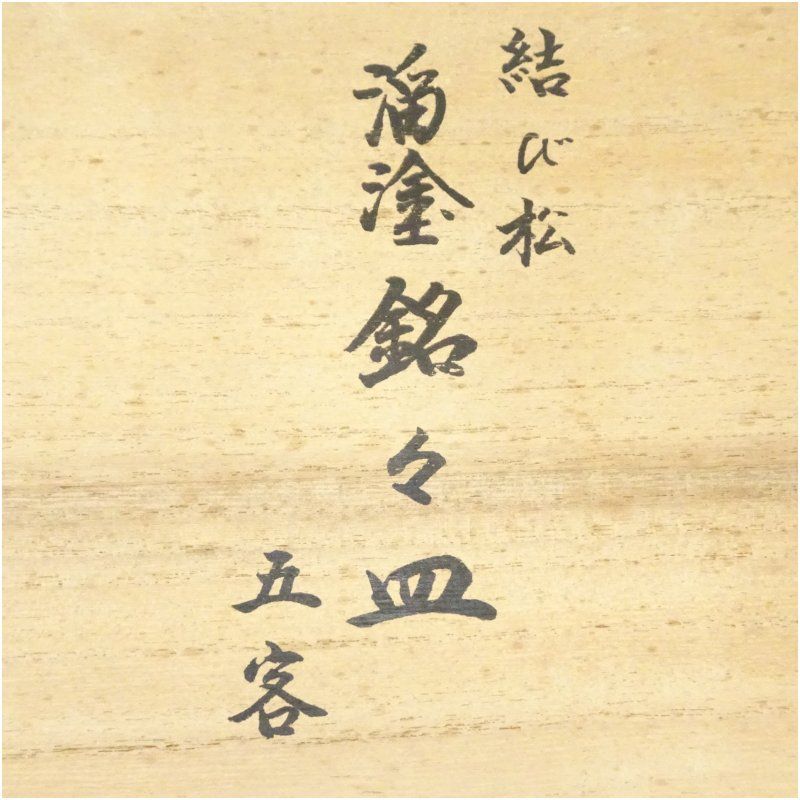 結び松
溜塗銘々皿
五客